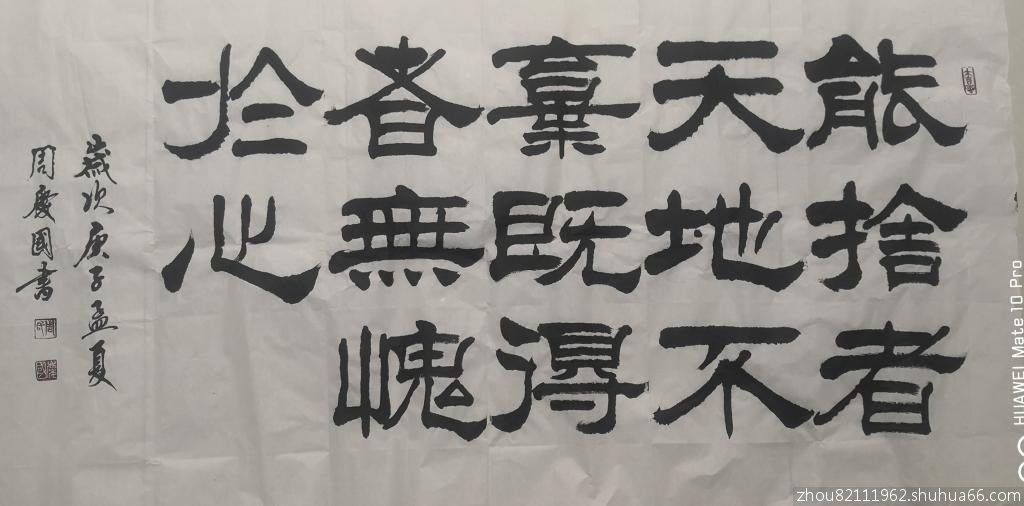 能捨者
天地不
棄既得
者無愧
於心
歲次庚子孟夏
周慶國書
HUAWEI Mate 10 Pro
zhou82111962.shuhua66.com